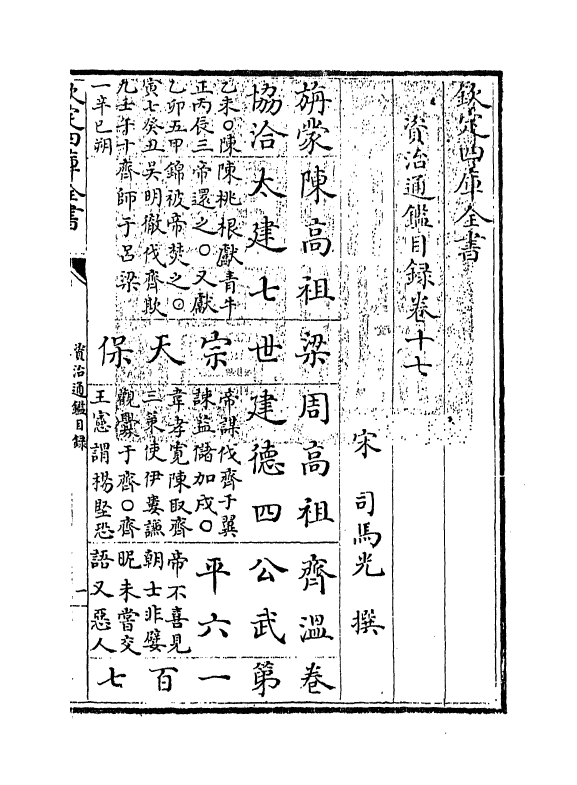 欽定四庫全書
資治通鑑目録卷十七
宋 司馬光 撰
旃蒙 陳高祖 梁 周高祖 齊溫 卷
協洽 太建七 世 建德四 公武 第
乙未〇陳 陳桃根獻青牛 宗 帝謀伐齊于翼 平六 一
正丙辰三 帝還之〇又獻 諫益儲加戍〇
乙卯五甲 錦被帝焚之〇 天 韋孝寬陳取齊 帝不喜見 百
寅七癸丑 吳明徹伐齊敗 三策使伊婁謙 朝士非嬖
九壬午十 齊師于呂梁 保 觀釁于齊〇齊 昵未嘗交 七
一辛巳朔 王憲謂楊堅恐 語又惡人
欽定四庫全書
資治通鑑目録
一